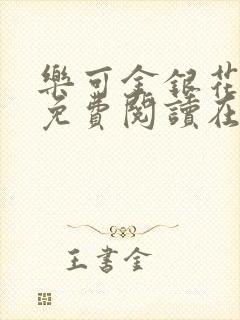 樂可金銀花
免費閱讀在
王書金